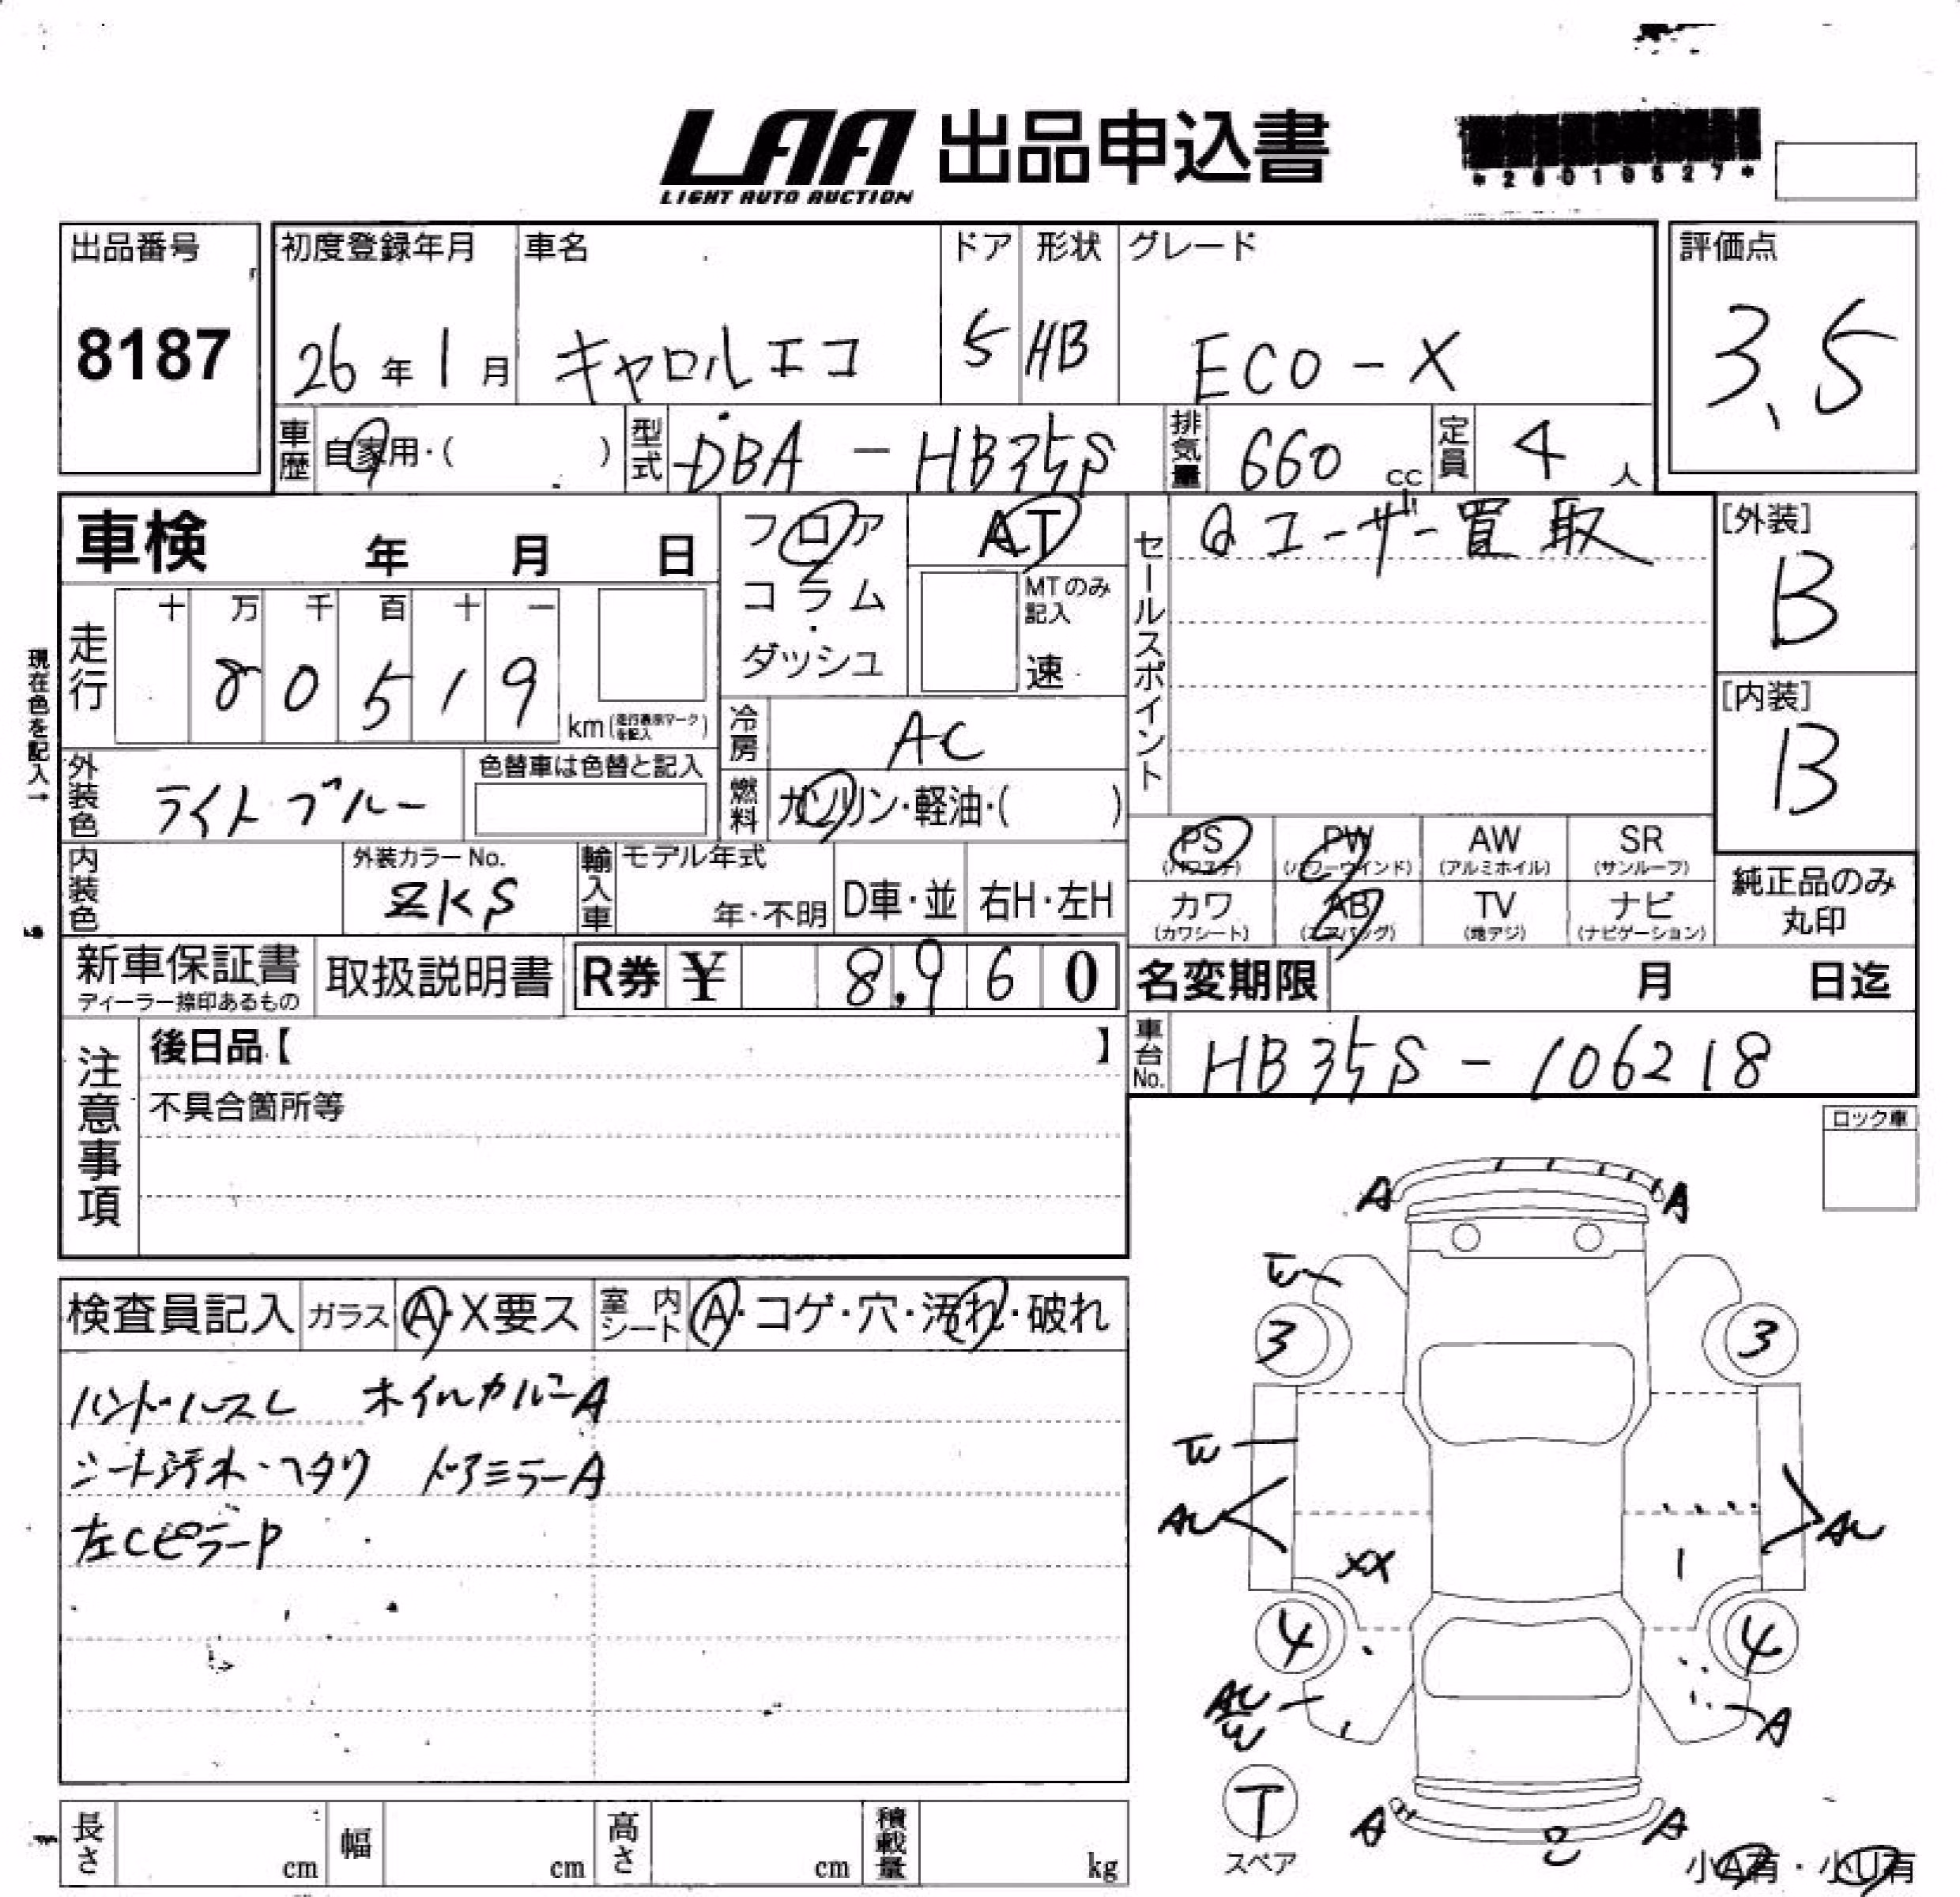 LAA 出品申込書
LIGHT AUTO AUCTION
出品番号
8187
初度登録年月
26年1月
車名
キャロルエコ
ドア
5
形状
HB
グレード
ECO-X
評価点
3.5
車歴 自家用・( )
型式 DBA-HB35S
排気量 660 cc
定員 4 人
車検 年 月 日
フロア
コラム
ダッシュ
AT
MTのみ記入
速
セールスポイント
ユーザー買取
[外装]
B
[内装]
B
現在色を記入→
走行
十 万 千 百 十 一
8 0 5 1 9
km(走行表示マークを記入)
冷房 AC
燃料 ガソリン・軽油・( )
外装色 ライトブルー
色替車は色替と記入
内装色
外装カラーNo.
ZKS
輸入車
モデル年式
年・不明
D車・並
右H・左H
PS (パワステ)
PW (パワーウインド)
AW (アルミホイル)
SR (サンルーフ)
カワ (カワシート)
AB (エアバッグ)
TV (地デジ)
ナビ (ナビゲーション)
純正品のみ
丸印
新車保証書
ディーラー捺印あるもの
取扱説明書
R券 ¥ 8,960
名変期限 月 日迄
車台No. HB35S-106218
注意事項
後日品【 】
不具合箇所等
ロック車
検査員記入
ガラス A・X要ス
室内シート A・コゲ・穴・汚れ・破れ
ハンドルスレ ホイルカバーA
シート汚れ・ヘタリ ドアミラーA
左CピラーP
A A
3 3
XX
4 4
A
T
スペア
A A
小A有・小U有
長さ cm
幅 cm
高さ cm
積載量 kg